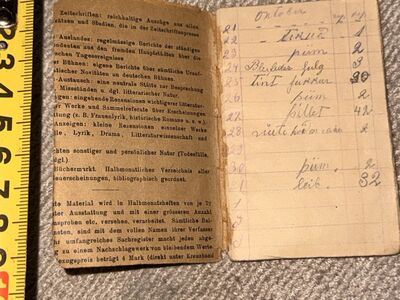 Zeitschriften: reichhaltige Auszüge aus allen
sätzen und Studien, die in der Zeitschriftenpresse
Auslandes: regelmässige Berichte der ständigen
ndenten aus den fremden Hauptstädten über die
chen Tagesereignisse
r Bühnen: eigene Berichte über sämtliche Urauf-
rischer Novitäten an deutschen Bühnen.
Austausch: eine neutrale Stätte zur Besprechung
Missständen u. dgl. litterarischer Natur.
ngen: eingehende Rezensionen wichtigerer Litteratur-
er Werke und Sammelreferate über Erscheinungen
ttung (z. B. Frauenlyrik, historische Romane u. s. w.).
nzeigen: kleine Rezensionen einzelner Werke
le, Lyrik, Drama, Litteraturwissenschaft und
hten sonstiger und persönlicher Natur (Todesfälle,
dgl.)
Büchermarkt. Halbmonatliches Verzeichnis aller
euerscheinungen, bibliographisch geordnet.
te Material wird in Halbmonatsheften von je
ter Ausstattung und mit einer grösseren Anzahl
nsproben etc. versehen, verarbeitet. Sämtliche Bei-
nsten, sind mit dem vollen Namen ihrer Verfasser
hr umfangreiches Sachregister macht jeden abge-
g zu einem Nachschlagewerk von bleibendem Werte.
ezugspreis beträgt 4 Mark (direkt unter Kreuzband
Oktober
21
22 tikud 1
23 piim 2
24 3
25 tint 20
26 piim 2
27 pilet 42
28 2
30 piim 2
31 leib 32
2
3
4
5
6
7
8
9